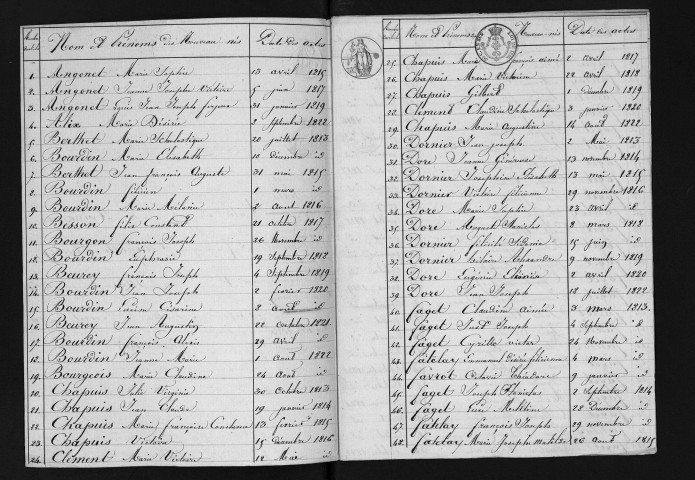 Nom et Prénoms des Nouveau nés Date des actes
1. Angonet Marie Sophie 13 avril 1815
2. Angonet Jeanne Joseph Victoire 5 juin 1817
3. Angonet Jean Joseph 31 janvier 1819
4. Alix Marie Désirée Septembre 1822
5. Berthet Marie Scholastique 20 juillet 1813
6. Bourdin Marie Elisabeth 10 décembre id
7. Berthet Jean françois Auguste 31 mai 1815
8. Bourdin 1 mars id
9. Bourdin Marie 2 avril 1816
10. Besson félix Constant 21 octobre 1817
11. Bourgon françois Joseph 26 Novembre id
12. Bourdin Euphrasie 19 Septembre 1818
13. françois Joseph 4 Septembre 1819
14. Bourdin Jean Joseph 2 février 1820
15. Bourdin Césarine 2 avril id
16. Jean Augustin 22 octobre 1821
17. Bourdin françois Alexis 29 avril id
18. Bourdin Jeanne Marie 1 août 1822
19. Bourgeois Marie Claudine 24 août id
20. Chapuis Julie Virginie 30 Octobre 1813
21. Chapuis Jean Claude 19 janvier 1814
22. Chapuis Marie françoise 13 février 1815
23. Chapuis Victoire 15 décembre 1816
24. Clément Marie Victoire 12 Mai id
Nom et Prénoms Nouveau nés Date des actes
25. Chapuis Marie aimé 2 avril 1817
26. Chapuis Marie Victorine 22 avril 1818
27. Chapuis Gilbert 1 décembre 1819
28. Clément Claudine Scholastique 3 janvier 1820
29. Chapuis Marie Augustine 14 août 1822
30. Dornier Jean Joseph 2 Mai 1813
31. Dore Jeanne 13 novembre 1814
32. Dornier Joséphine Elisabeth 13 mai 1815
33. Dornier Victoire 29 novembre 1816
34. Dore Marie Sophie 23 avril id
35. Dore Auguste Stanislas 8 mars 1818
36. Dornier félicité 15 juin id
37. Dornier Alexandre 9 novembre 1819
38. Dore Eugénie 2 avril 1820
39. Dore Jean Joseph 18 juillet 1822
40. faget Claudine aimée 3 mars 1813
41. faget Joseph 4 Septembre id
42. faget Cyrille Victor 24 Novembre id
43. Emmanuel Désiré 4 mars id
44. favrot Octavie 9 janvier id
45. faget Joseph Stanislas 2 Septembre 1814
46. faget 28 Décembre id
47. françois Joseph 29 novembre id
48. Marie Joseph 26 août 1815